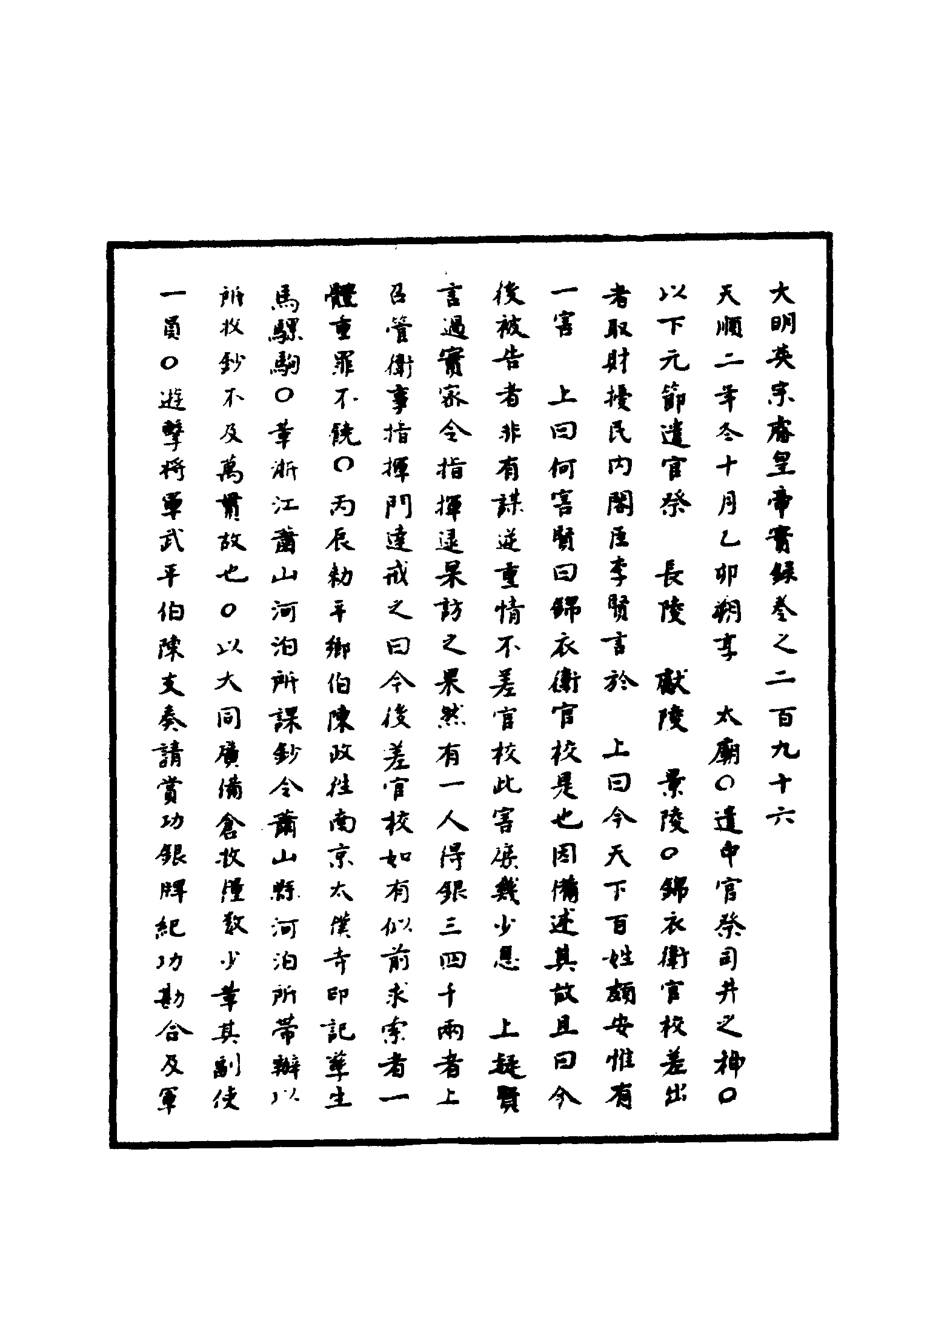 大明英宗睿皇帝實錄卷之二百九十六
天順二年冬十月乙卯朔享　太廟○遣中官祭司井之神○
以下元節遣官祭　長陵　獻陵　景陵○錦衣衛官校差出
者取財擾民內閣臣李賢言於　上曰今天下百姓頗安惟有
一害　上曰何害賢曰錦衣衛官校是也因備述其故且曰今
後被告者非有謀逆重情不差官校此害庶幾少息　上疑賢
言過實密令指揮逯杲訪之果然有一人得銀三四千兩者上
召管衛事指揮門達戒之曰今後差官校如有似前求索者一
體重罪不饒○丙辰勑平鄉伯陳政往南京太僕寺印記孳生
馬騾駒○革浙江蕭山河泊所課鈔令蕭山縣河泊所帶辦以
所收鈔不及萬貫故也○以大同廣備倉收糧數少革其副使
一員○遊擊將軍武平伯陳友奏請賞功銀牌紀功勘合及軍